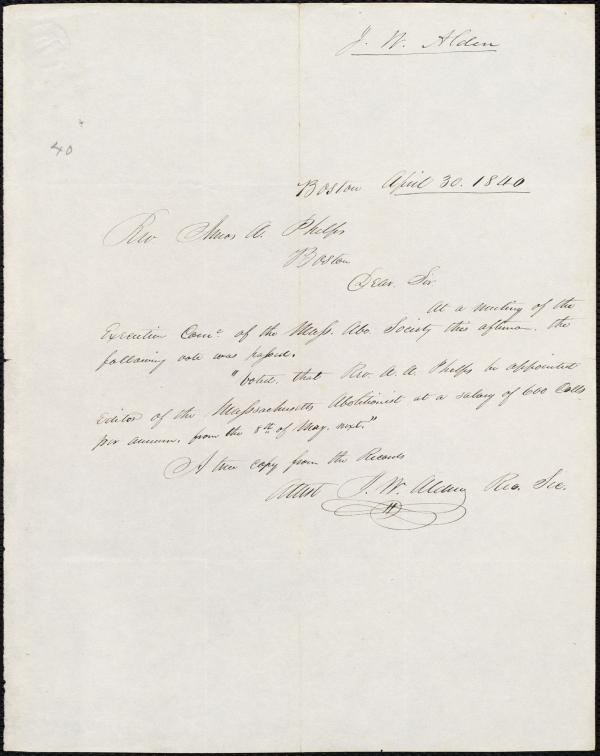 J. W. Alden
40
Boston April 30. 1840
Rev Amos A. Phelps
Boston
Dear Sir
At a meeting of the
Executive Come. of the Mass. Abo. Society this afternoon. the
following vote was passed.
"Voted. that Rev. A. A. Phelps be appointed
Editor of the Massachusetts Abolitionist at a salary of 600 Dolls
per annum, from the 8th of May. next."
A true copy from the Records
Attest J. W. Alden Rec. Sec.